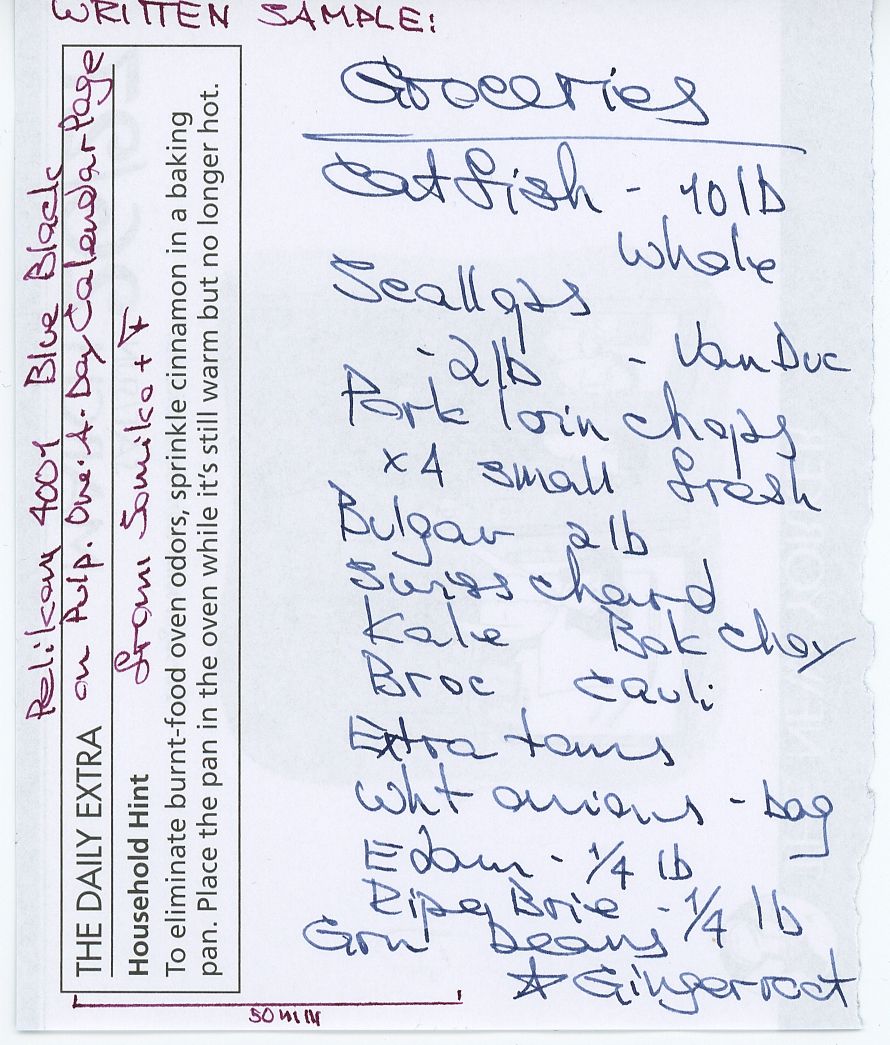 WRITTEN SAMPLE:
Pelikan 4001 Blue Black
on Pulp. One-A-Day Calendar Page
from Somiko + F
THE DAILY EXTRA
Household Hint
To eliminate burnt-food oven odors, sprinkle cinnamon in a baking
pan. Place the pan in the oven while it's still warm but no longer hot.
50 mm
Groceries
Catfish - 10 lb
Whole
Scallops
- 2 lb - Van Duc
Pork loin chops
x 4 small fresh
Bulgar 2 lb
Swiss chard
Kale Bok Choy
Broc Cauli
Extra toms
Wht onions - bag
Edam - 1/4 lb
Ripe Brie - 1/4 lb
Grn beans
☆ Gingerroot